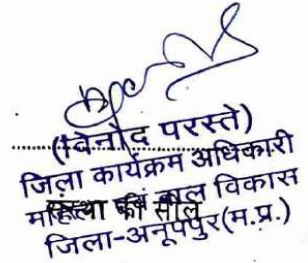 (विनोद परस्ते)
जिला कार्यक्रम अधिकारी
महिला एवं बाल विकास
संस्था की सील
जिला-अनूपपुर(म.प्र.)